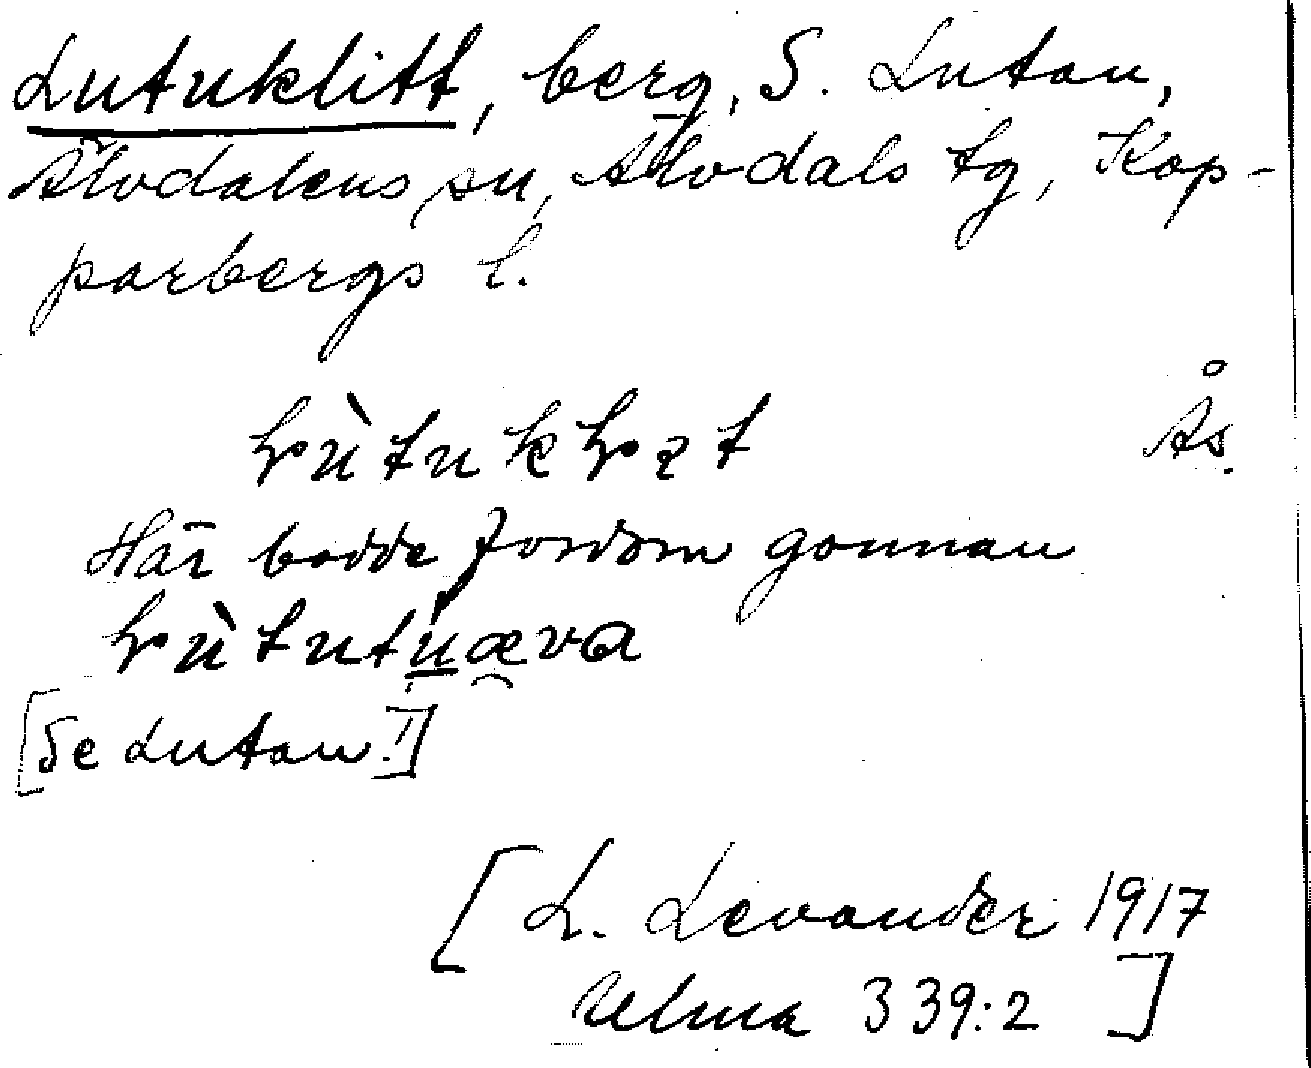 Lutuklitt, berg, S. Lutau,
Älvdalens sn, Älvdals tg, Kop-
parbergs l.
Ås.
Här bodde fordom gonnan
[Se Lutau!]
[L. Levander 1917
Ulma 339:2]